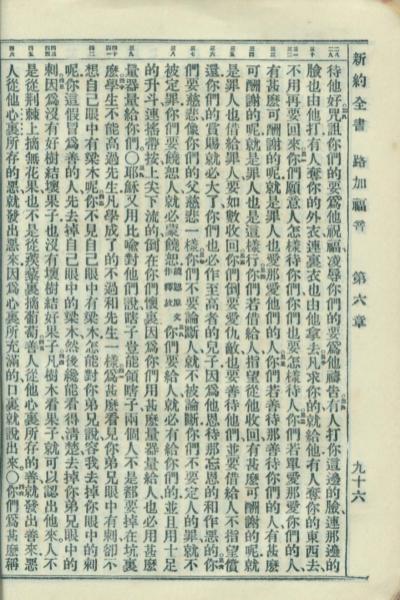 新約全書 路加福音 第六章 九十六
待他好咒詛你們的要爲他祝福凌辱你們的要爲他禱吿有人打你這邊的臉連那邊的
臉也由他打有人奪你的外衣連裏衣也由他拿去凡求你的就給他有人奪你的東西去
不用再要回來你們願意人怎樣待你們你們也要怎樣待人你們若單愛那愛你們的人
有甚麽可酬謝的呢就是罪人也愛那愛他們的人你們若善待那善待你們的人有甚麽
可酬謝的呢就是罪人也是這樣你們若借給人指望從他收回有甚麽可酬謝的呢就
是罪人也借給罪人要如數收回你們倒要愛仇敵也要善待他們並要借給人不指望償
還你們的賞賜就必大了你們也必作至高者的兒子因爲他恩待那忘恩的和作惡的你
們要慈悲像你們的父慈悲一樣你們不要論斷人就不被論斷你們不要定人的罪就不
被定罪你們要饒恕人就必蒙饒恕 你們要給人就必有給你們的並且用十足
的升斗連搖帶按上尖下流的倒在你們懷裏因爲你們用甚麽量器量給人也必用甚麽
量器量給你們〇耶穌又用比喻對他們說瞎子豈能領瞎子兩個人不是都要掉在坑裏
麽學生不能高過先生凡學成了的不過和先生一樣爲甚麽看見你弟兄眼中有刺卻不
想自己眼中有梁木呢你不見自己眼中有梁木怎能對你弟兄說容我去掉你眼中的刺
呢你這假冒爲善的人先去掉自己眼中的梁木然後纔能看得淸楚去掉你弟兄眼中的
刺因爲沒有好樹結壞果子也沒有壞樹結好果子凡樹木看果子就可以認出他來人不
是從荊棘上摘無花果也不是從蒺藜裏摘葡萄善人從他心裏所存的善就發出善來惡
人從他心裏所存的惡就發出惡來因爲心裏所充滿的口裏就說出來〇你們爲甚麽稱